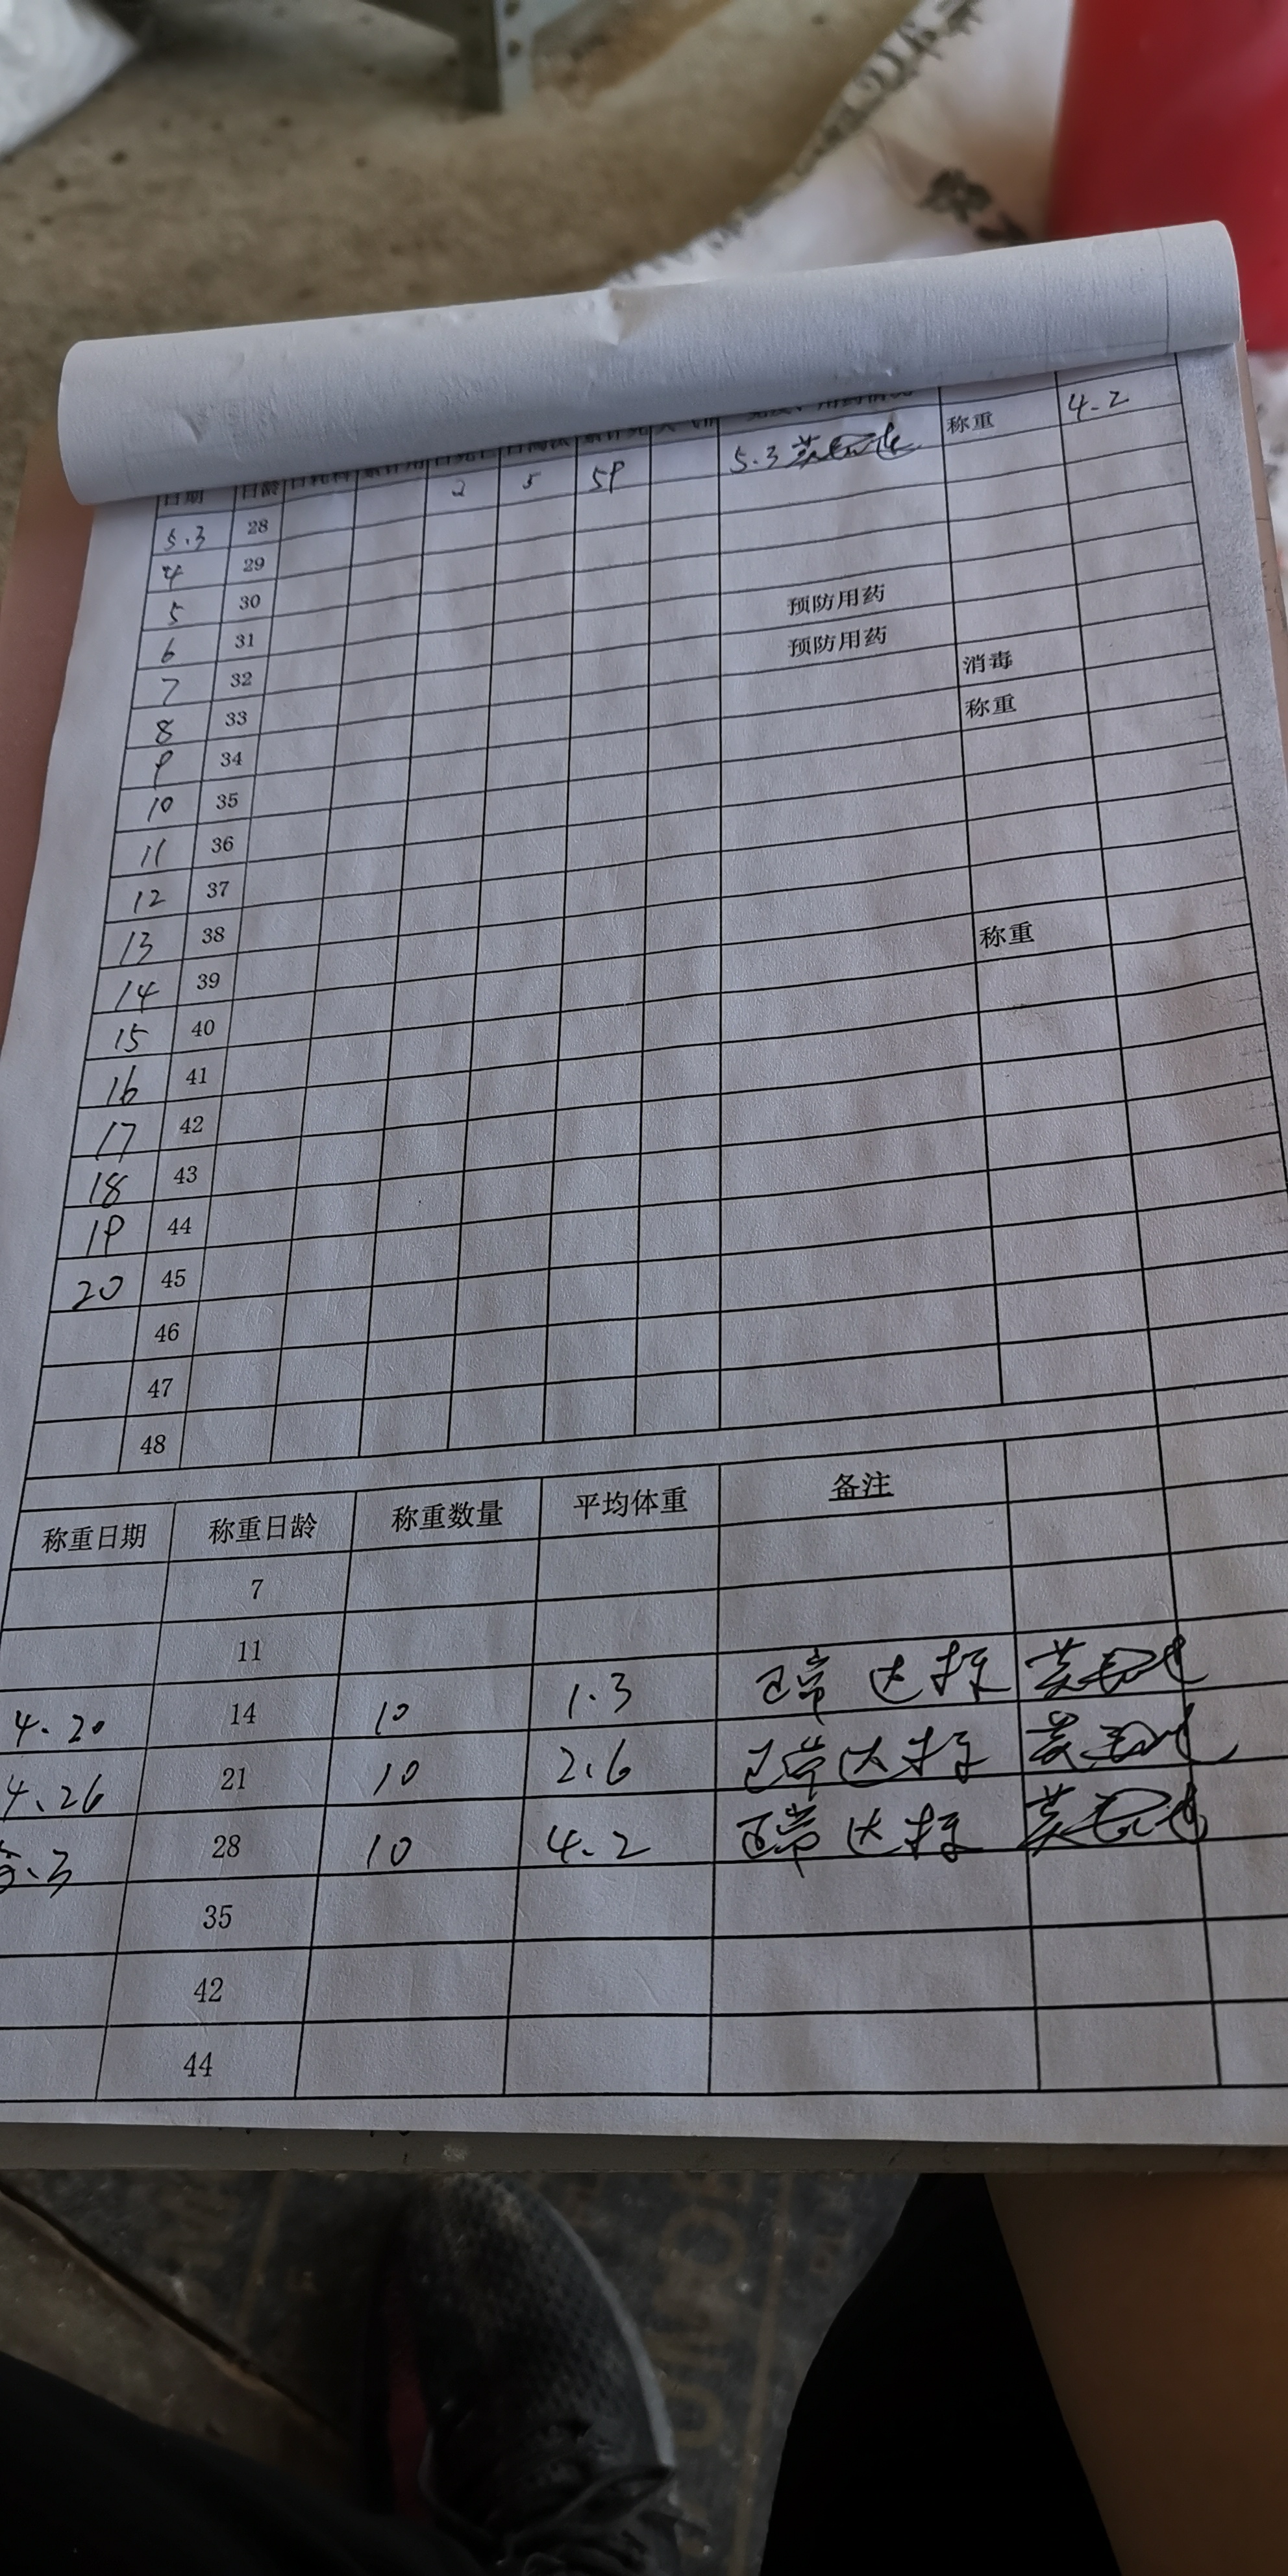 日期 日龄 日耗料 累计用 日死亡 日淘汰 累计死 天气情 免疫、用药情况
5.3 28 2 5 59 5.3 称重 4.2
4 29
5 30
6 31 预防用药
7 32 预防用药
8 33 消毒
9 34 称重
10 35
11 36
12 37
13 38
14 39
15 40 称重
16 41
17 42
18 43
19 44
20 45
46
47
48
称重日期 称重日龄 称重数量 平均体重 备注
7
11
4.20 14 10 1.3 正常 达标
4.26 21 10 2.6 正常达标
5.3 28 10 4.2 正常 达标
35
42
44